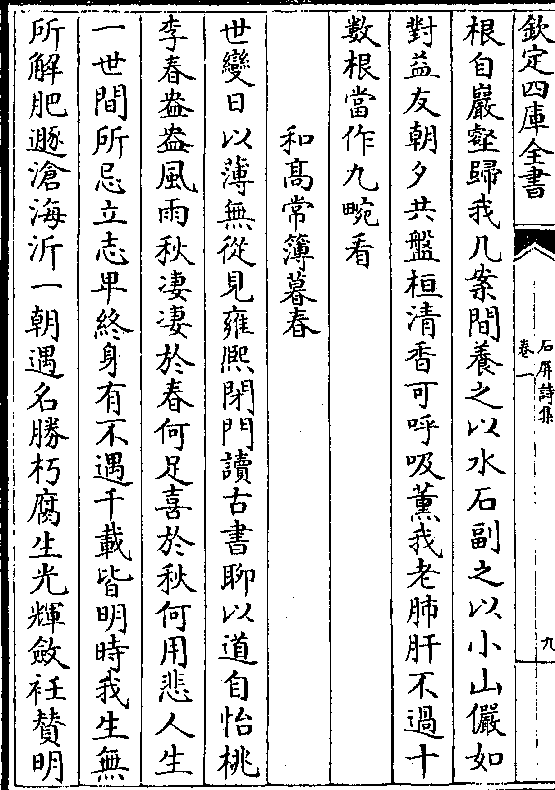 欽定四庫全書
石屏詩集
卷一
九
根自巖壑歸我几案間養之以水石副之以小山儼如
對益友朝夕共盤桓清香可呼吸薰我老肺肝不過十
數根當作九畹看
和高常簿暮春
世變日以薄無從見雍熈閉門讀古書聊以道自怡桃
李春盎盎風雨秋凄凄於春何足喜於秋何用悲人生
一世間所忌立志卑終身有不遇千載皆明時我生無
所解肥遯滄海沂一朝遇名勝朽腐生光輝斂衽賛明